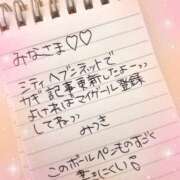 みなさま♡♡
シティヘブンネットで
カギ記事更新したよーっ
よければマイガール登録
してねっっ
みつき
このボールペンものすごく
書きにくい